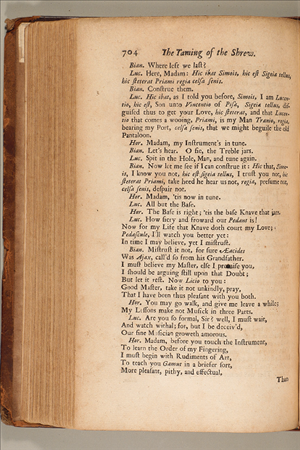 704 The Taming of the Shrew.
Bian. Where left we last?
Luc. Here, Madam: Hic ibat Simois, hic est Sigeia tellus,
hic steterat Priami regia celsa senis.
Bian. Construe them.
Luc. Hic ibat, as I told you before, Simois, I am Lucen-
tio, hic est, Son unto Vincentio of Pisa, Sigeia tellus, dis-
guised thus to get your Love, hic steterat, and that Lucen-
tio that comes a wooing, Priami, is my Man Tranio, regia,
bearing my Port, celsa senis, that we might beguile the old
Pantaloon.
Hor. Madam, my Instrument's in tune.
Bian. Let's hear. O fie, the Treble jars.
Luc. Spit in the Hole, Man, and tune again.
Bian. Now let me see if I can construe it: Hic ibat, Simo-
is, I know you not, hic est sigeia tellus, I trust you not, hic
steterat Priami, take heed he hear us not, regia, presume not,
celsa senis, despair not.
Hor. Madam, 'tis now in tune.
Luc. All but the Base.
Hor. The Base is right; 'tis the base Knave that jars.
Luc. How fiery and froward our Pedant is!
Now for my Life that Knave doth court my Love;
Pedascule, I'll watch you better yet:
In time I may believe, yet I mistrust.
Bian. Mistrust it not, for sure Æacides
Was Ajax, call'd so from his Grandfather.
I must believe my Master, else I promise you,
I should be arguing still upon that Doubt;
But let it rest. Now Licio to you:
Good Master, take it not unkindly, pray,
That I have been thus pleasant with you both.
Hor. You may go walk, and give me leave a while;
My Lessons make not Musick in three Parts.
Luc. Are you so formal, Sir? well, I must wait,
And watch withal; for, but I be deceiv'd,
Our fine Musician groweth amorous.
Hor. Madam, before you touch the Instrument,
To learn the Order of my Fingering,
I must begin with Rudiments of Art,
To teach you Gamut in a briefer sort,
More pleasant, pithy, and effectual,
Than